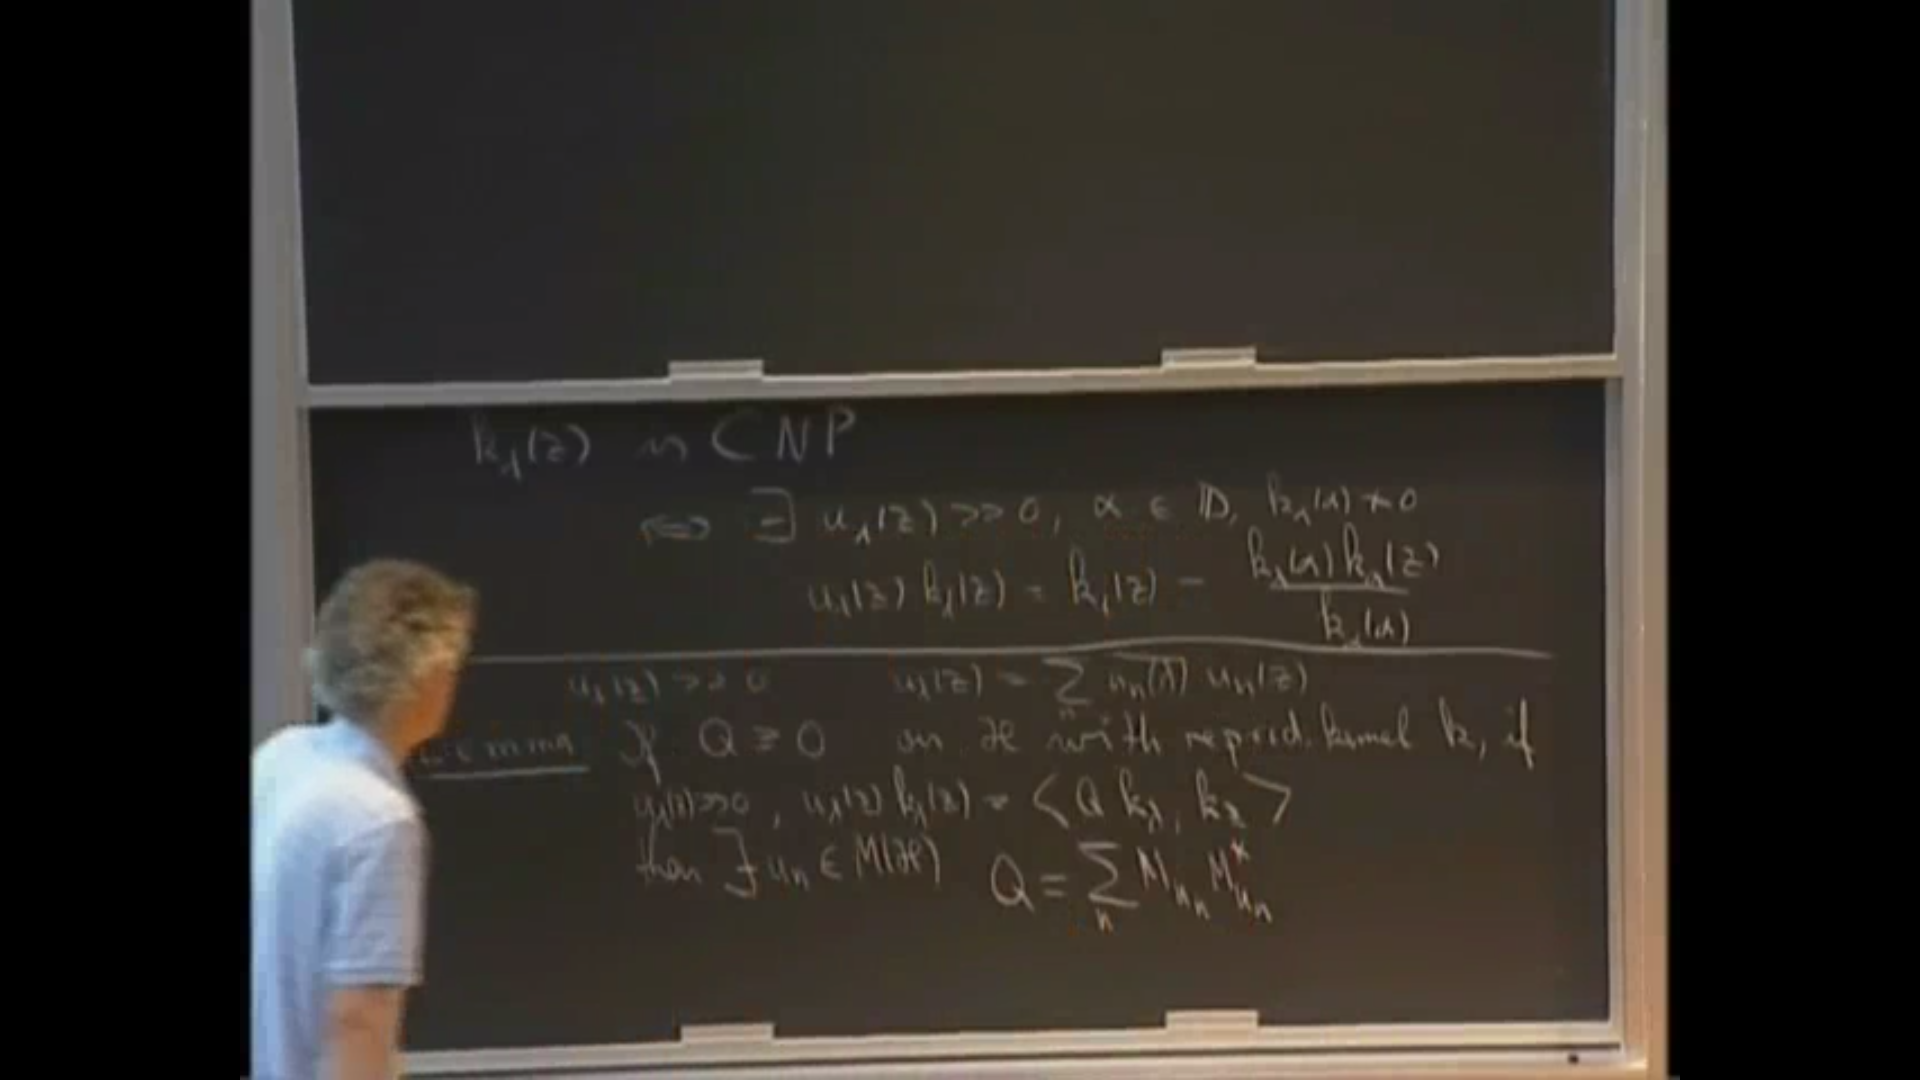 k_λ(z) is CNP
⟺ ∃ u_λ(z) >> 0, α ∈ D, k_λ(α) ≠ 0
u_λ(z) k_λ(z) = k_λ(z) - \frac{k_λ(α) k_α(z)}{k_α(α)}
u_λ(z) >> 0 u_λ(z) = Σ_n \overline{u_n(λ)} u_n(z)
Lemma If Q ≥ 0 on ℋ with reprod. kernel k, if
u_λ(z) >> 0, u_λ(z) k_λ(z) = ⟨Q k_λ, k_z⟩
then ∃ u_n ∈ M(ℋ) Q = Σ_n M_{u_n} M^*_{u_n}